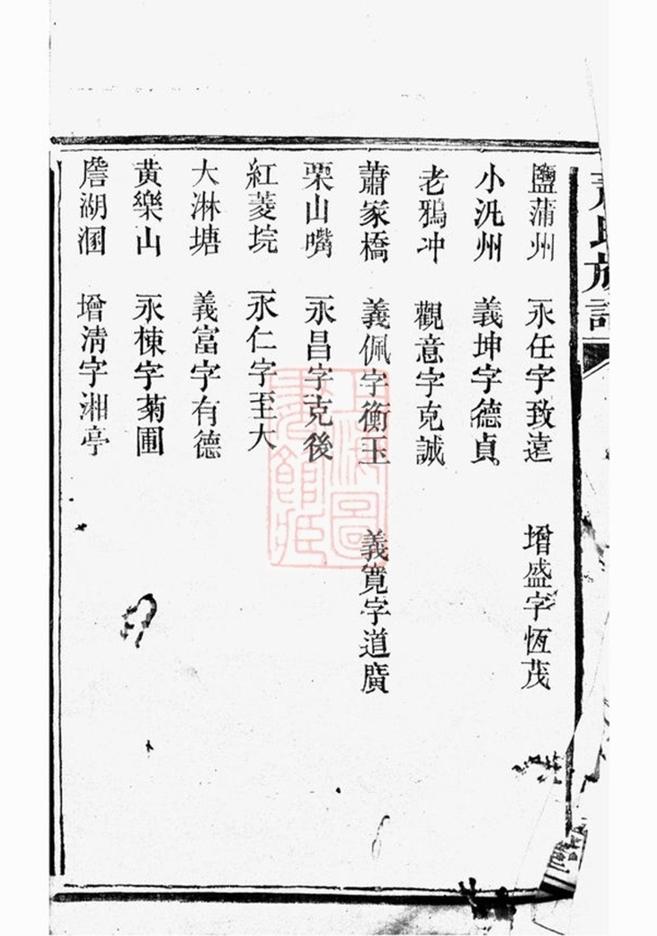 氏族譜
鹽蒲州 永任字致遠 增盛字恆茂
小沉州 義坤字德貞
老鴉冲 觀意字克誠
蕭家橋 義佩字衡玉 義寬字道廣
栗山嘴 永昌字克後
紅菱垸 永仁字至大
大淋塘 義富字有德
黃樂山 永棟字菊圃
詹湖溷 增淸字湘亭
上海圖書館藏